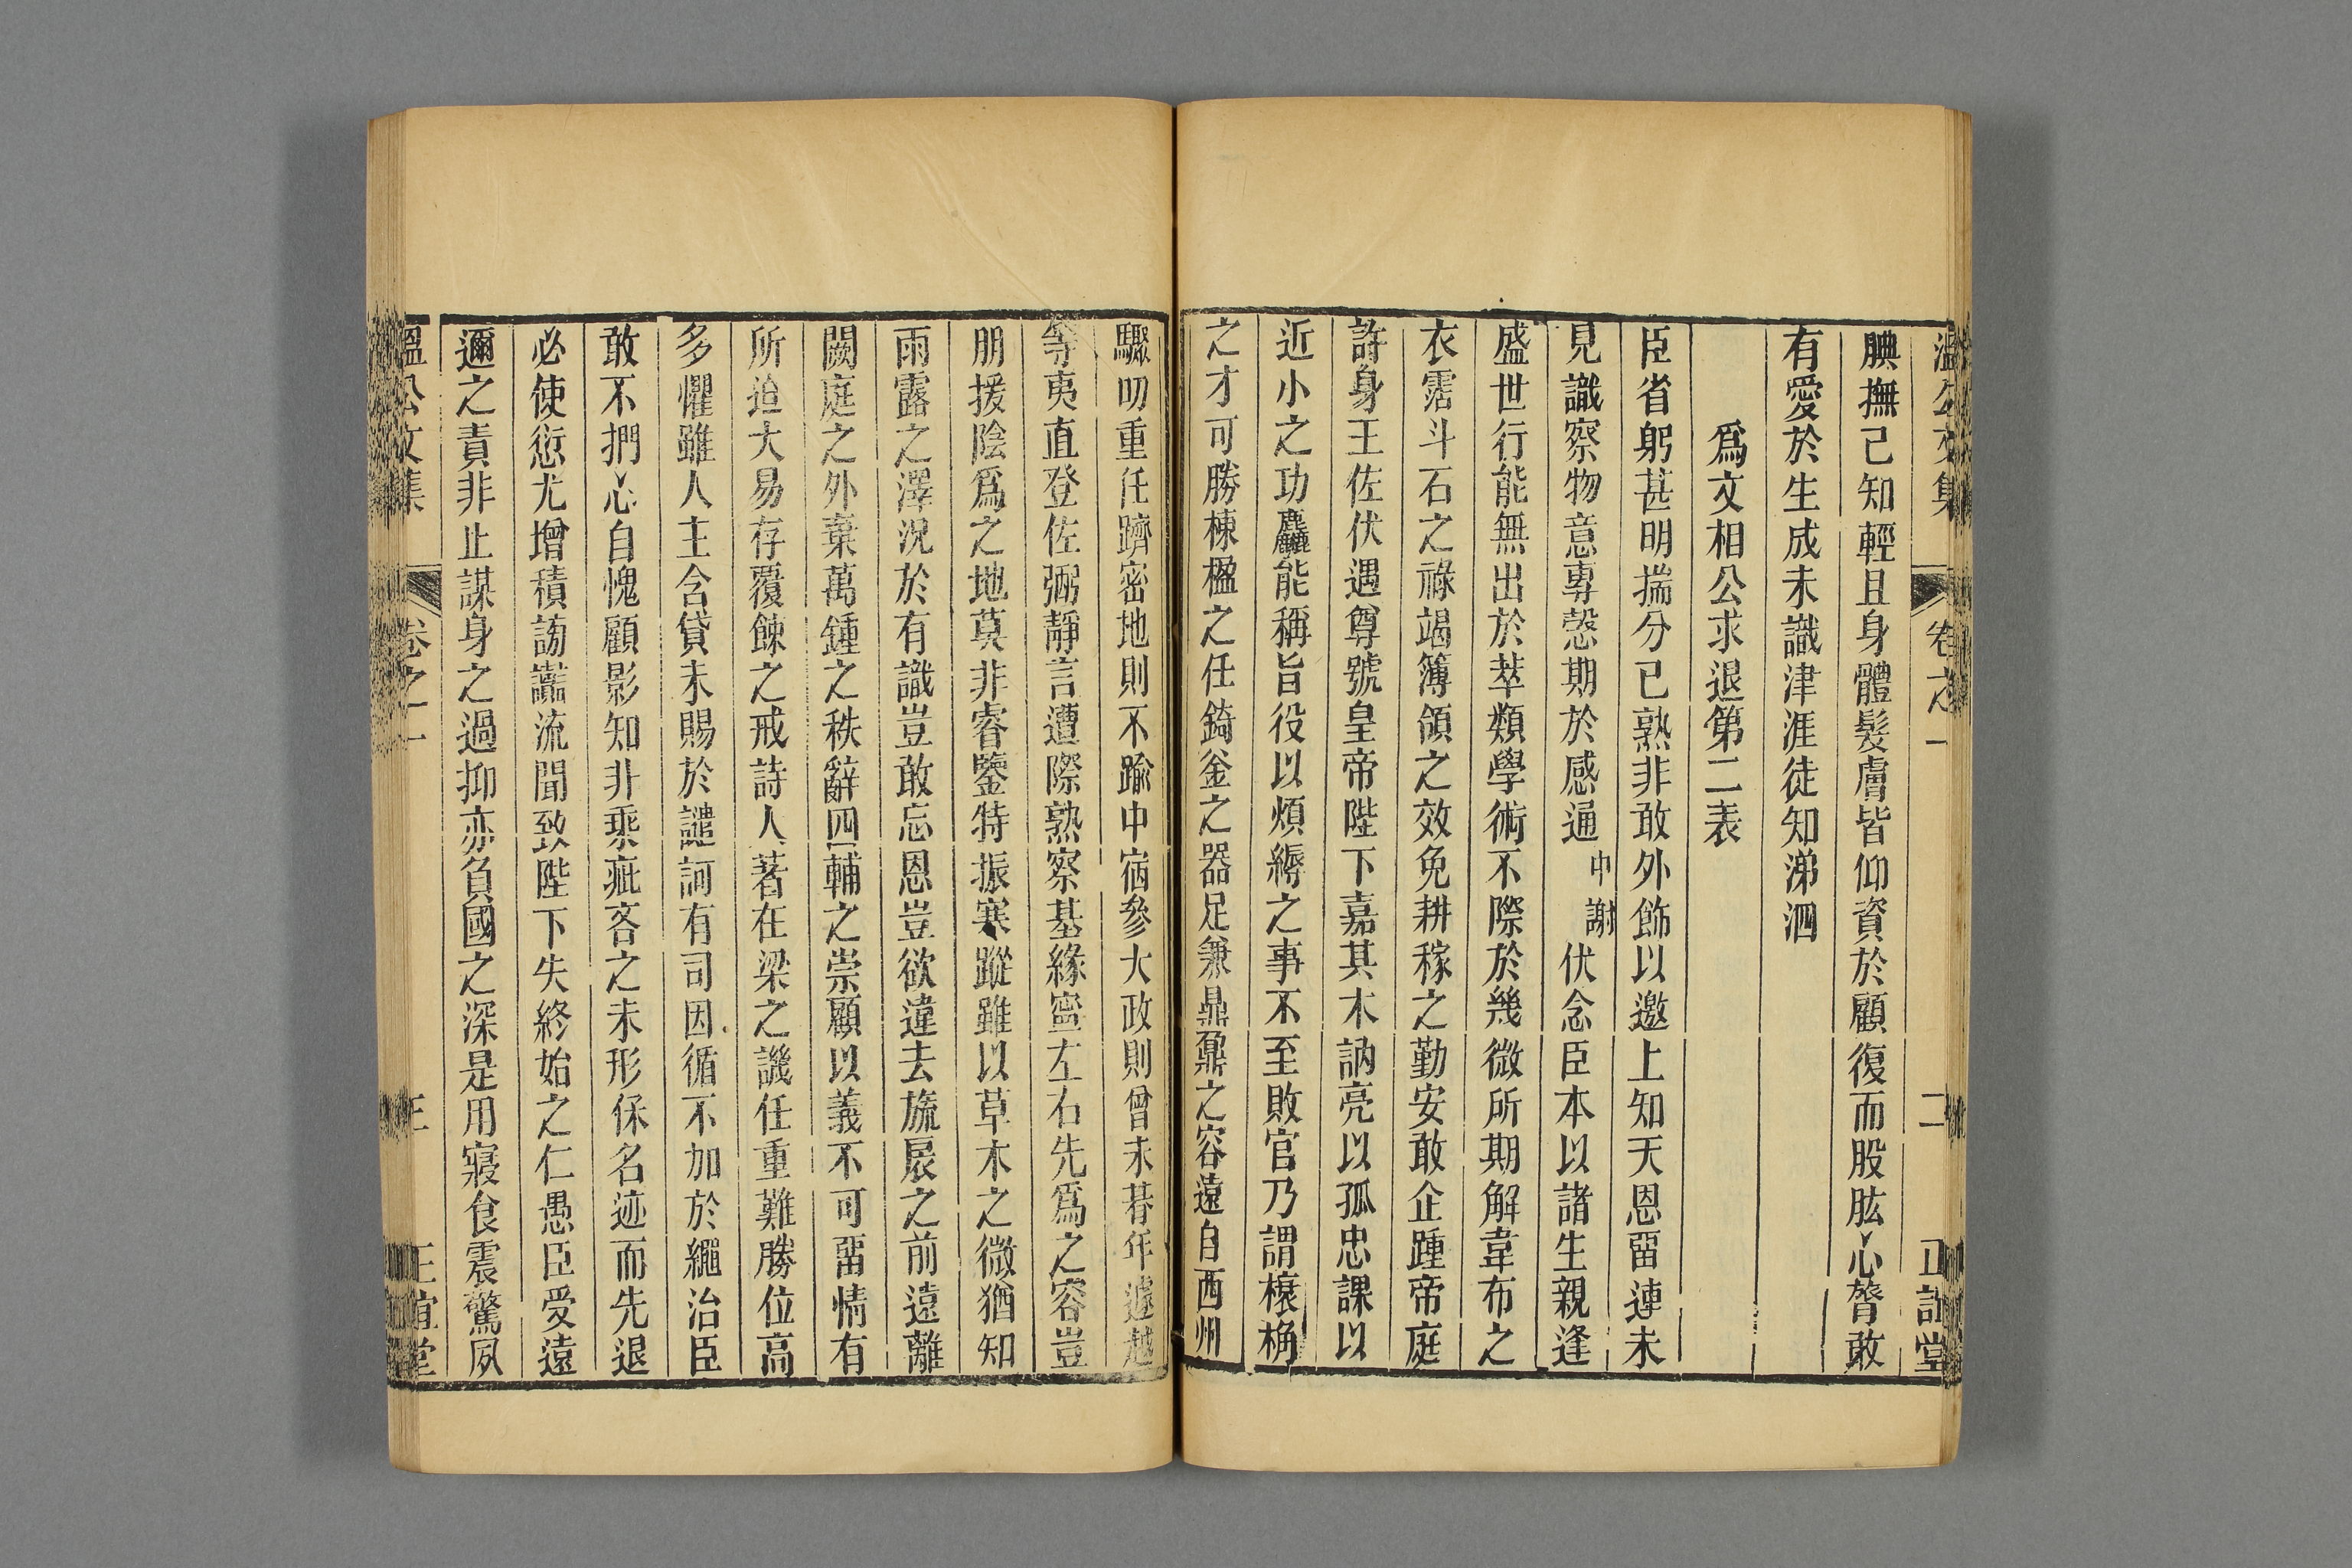 溫公文集 卷之一 二 正誼堂
腆撫己知輕且身體髮膚皆仰資於顧復而股肱心膂敢
有愛於生成未識津涯徒知涕泗
爲文相公求退第二表
臣省躬甚明揣分已熟非敢外飾以邀上知天恩畱連未
見識察物意專愨期於感通中謝伏念臣本以諸生親逢
盛世行能無出於萃類學術不際於幾微所期解韋布之
衣霑斗石之祿竭簿領之效免耕稼之勤安敢企踵帝庭
許身王佐伏遇尊號皇帝陛下嘉其木訥亮以孤忠課以
近小之功麤能稱旨役以煩縟之事不至敗官乃謂榱桷
之才可勝棟楹之任錡釜之器足兼鼎鼐之容遠自西州
驟叨重任躋密地則不踰中宿參大政則曾未朞年遽越
等夷直登佐弼靜言遭際熟察基緣寍左右先爲之容豈
朋援陰爲之地莫非睿鑒特振寒蹤雖以草木之微猶知
雨露之澤況於有識豈敢忘恩豈欲違去旒扆之前遠離
闕庭之外棄萬鍾之秩辭四輔之崇顧以義不可畱情有
所迫大易存覆餗之戒詩人著在梁之譏任重難勝位高
多懼雖人主含貸未賜於譴訶有司因循不加於繩治臣
敢不捫心自愧顧影知非乘疵吝之未形保名迹而先退
必使愆尤增積謗讟流聞致陛下失終始之仁愚臣受遠
邇之責非止謀身之過抑亦負國之深是用寢食震驚夙
溫公文集 卷之一 三 正誼堂